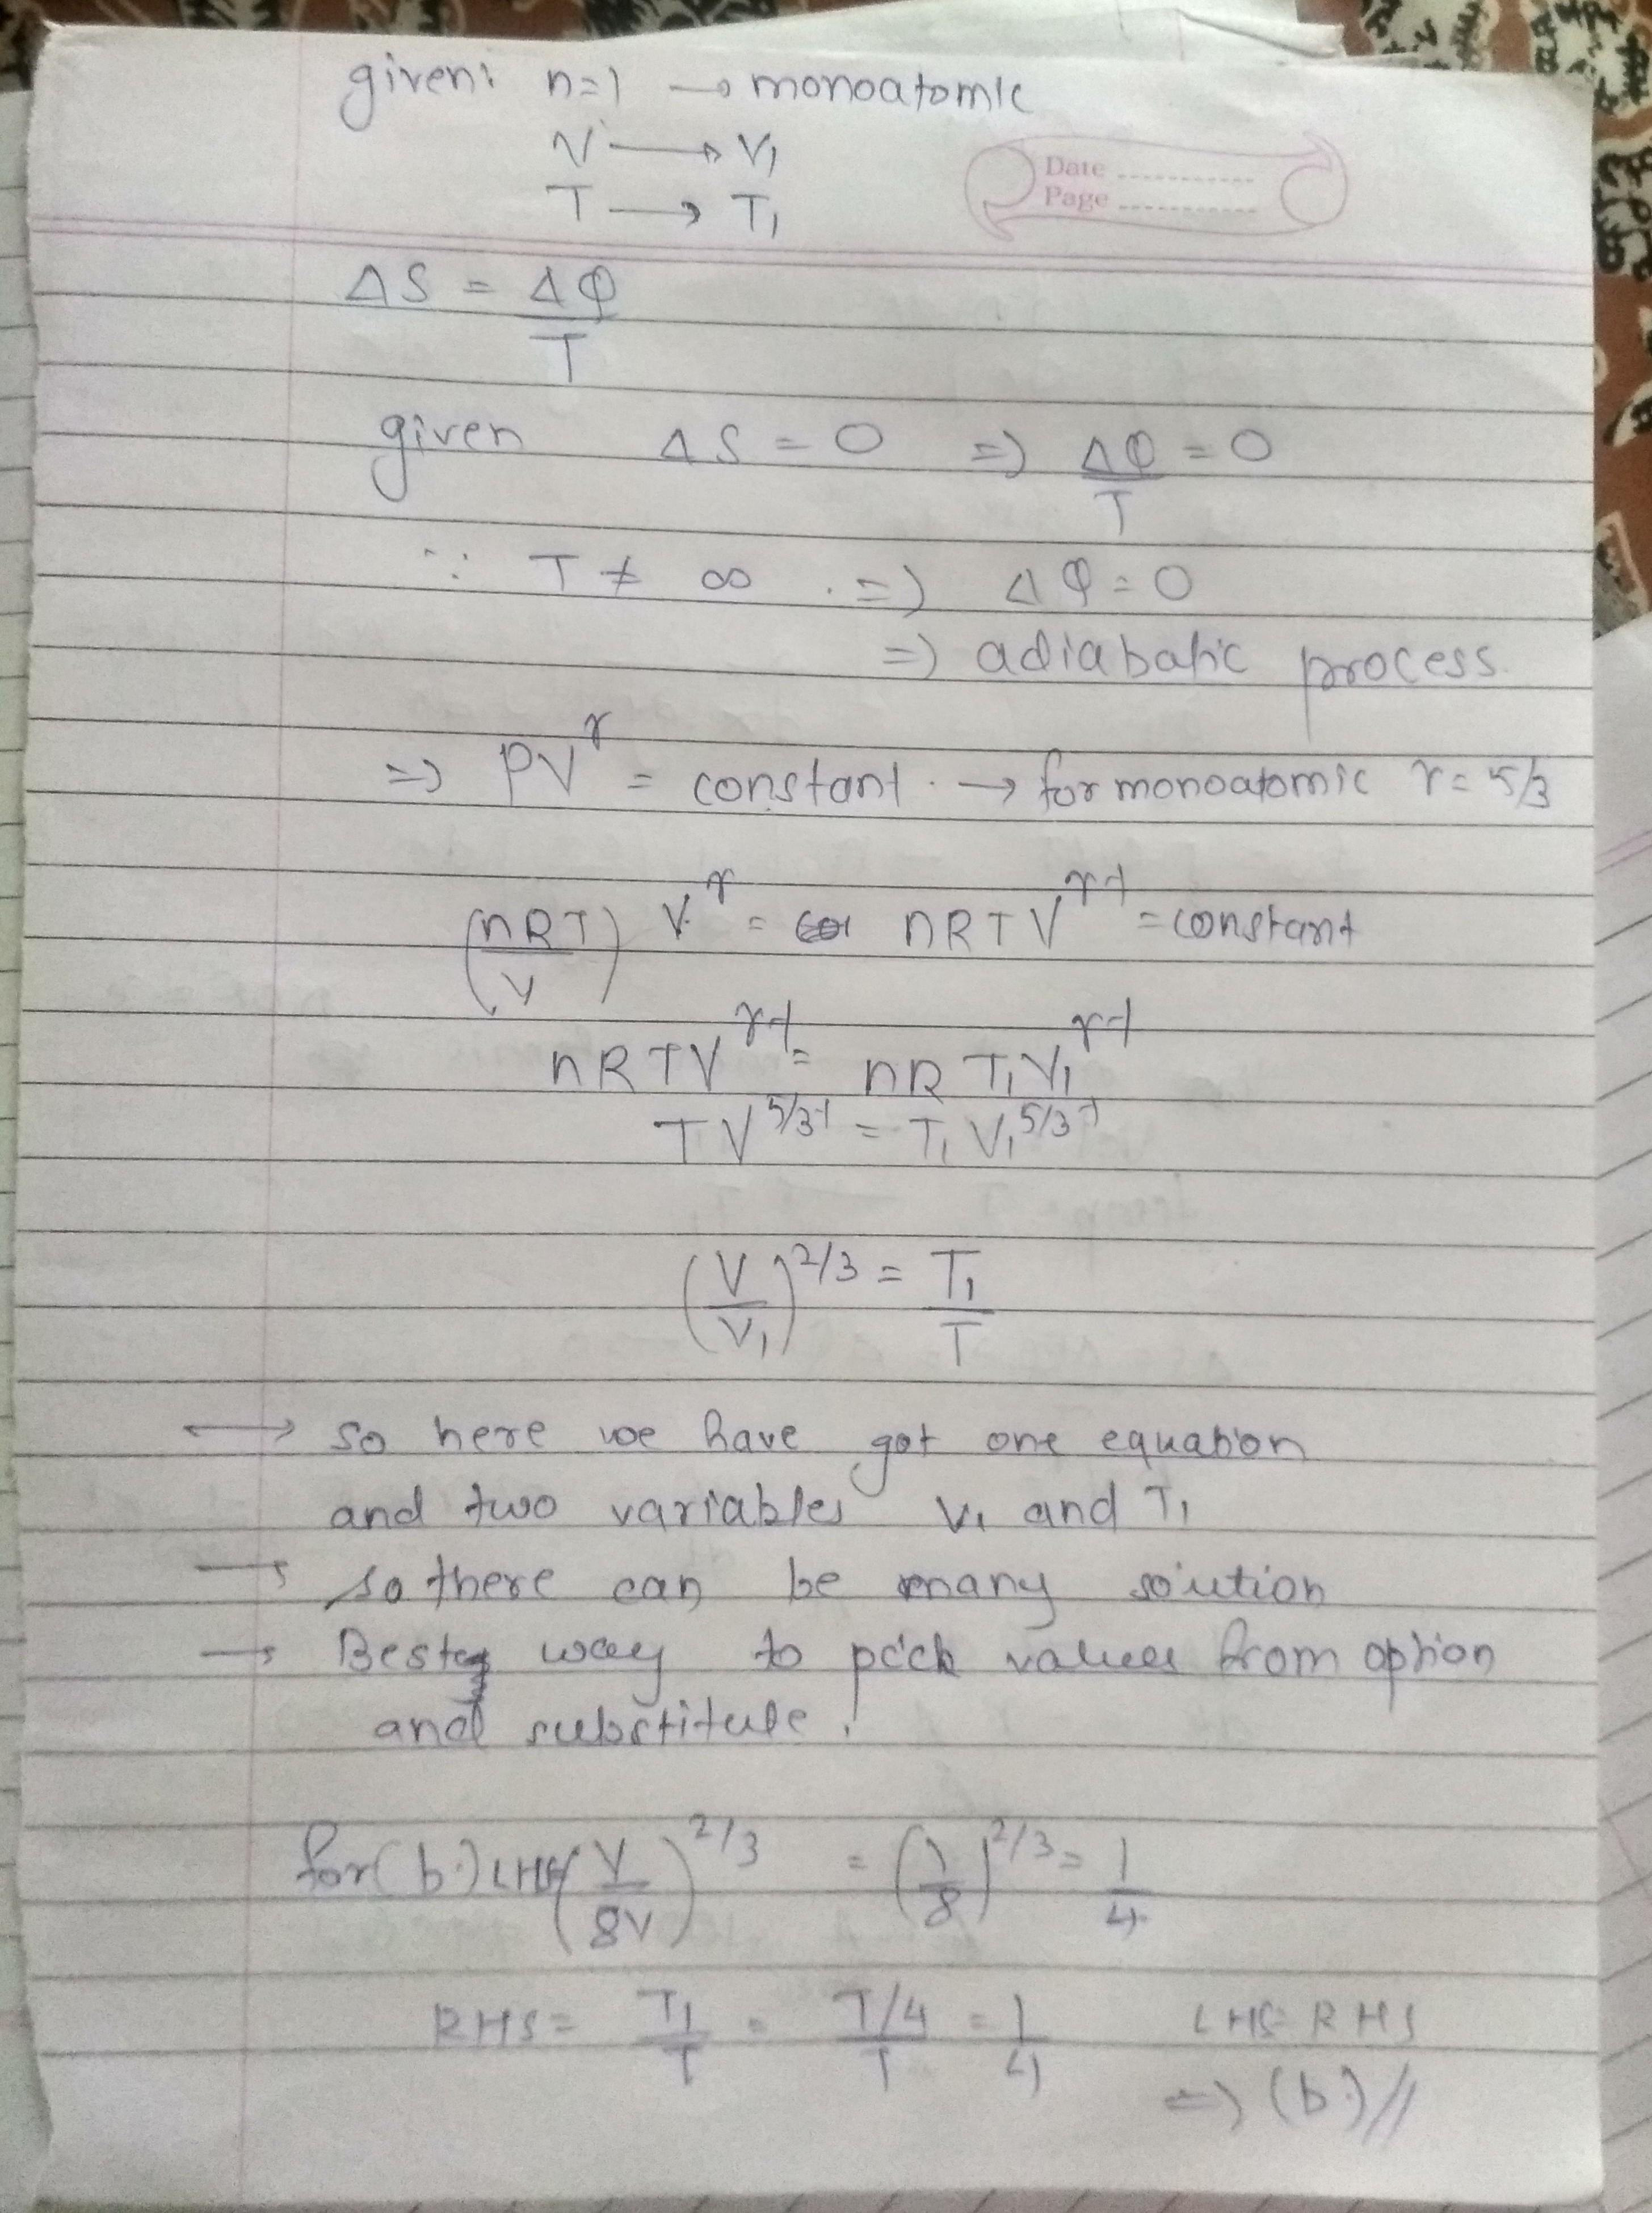 given: n=1 → monoatomic
V → V₁
Date ............
Page ............
T → T₁
ΔS = ΔQ/T
given ΔS = 0 ⇒ ΔQ/T = 0
∵ T ≠ ∞ . ⇒ ΔQ = 0
⇒ adiabatic process.
⇒ PV^γ = constant. → for monoatomic γ = 5/3
(nRT/V) V^γ = nRTV^γ-1 = constant
nRTV^γ-1 = nRT₁V₁^γ-1
TV^5/3-1 = T₁V₁^5/3-1
(V/V₁)^2/3 = T₁/T
→ so here we have got one equation
and two variables V₁ and T₁
→ so there can be many soution
→ Best way to pick values from option
and substitute.
for (b.) LHS (V/8V)^2/3 = (1/8)^2/3 = 1/4
RHS = T₁/T = T/4/T = 1/4 LHS = RHS
⇒ (b.)//